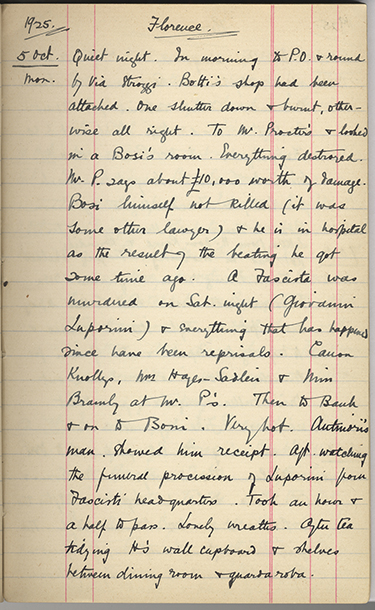 1925. Florence.
5 Oct. Quiet night. In morning to P.O. & round
Mon. by Via Strozzi. Botti's shop had been
attached. One shutter down & burnt, other-
wise all right. To Mr. Procter's & looked
in a Bosi's room. Everything destroyed.
Mr. P. says about £10,000 worth of damage.
Bosi himself not killed (it was
some other lawyer) & he is in hospital
as the result of the beating he got
some time ago. A Fascista was
murdered on Sat. night (Giovanni
Luporini) & everything that has happened
since have been reprisals. Canon
Knollys, Mrs Hayes-Sadler & Miss
at Mr. P's. Then to Bank
& on to Boni. Very hot.
man. Showed him receipt. Aft. watching
the funeral procession of Luporini from
Fascisti headquarters. Took an hour &
a half to pass. Lovely wreaths. After tea
tidying H's wall cupboard & shelves
between dining room & guardaroba.